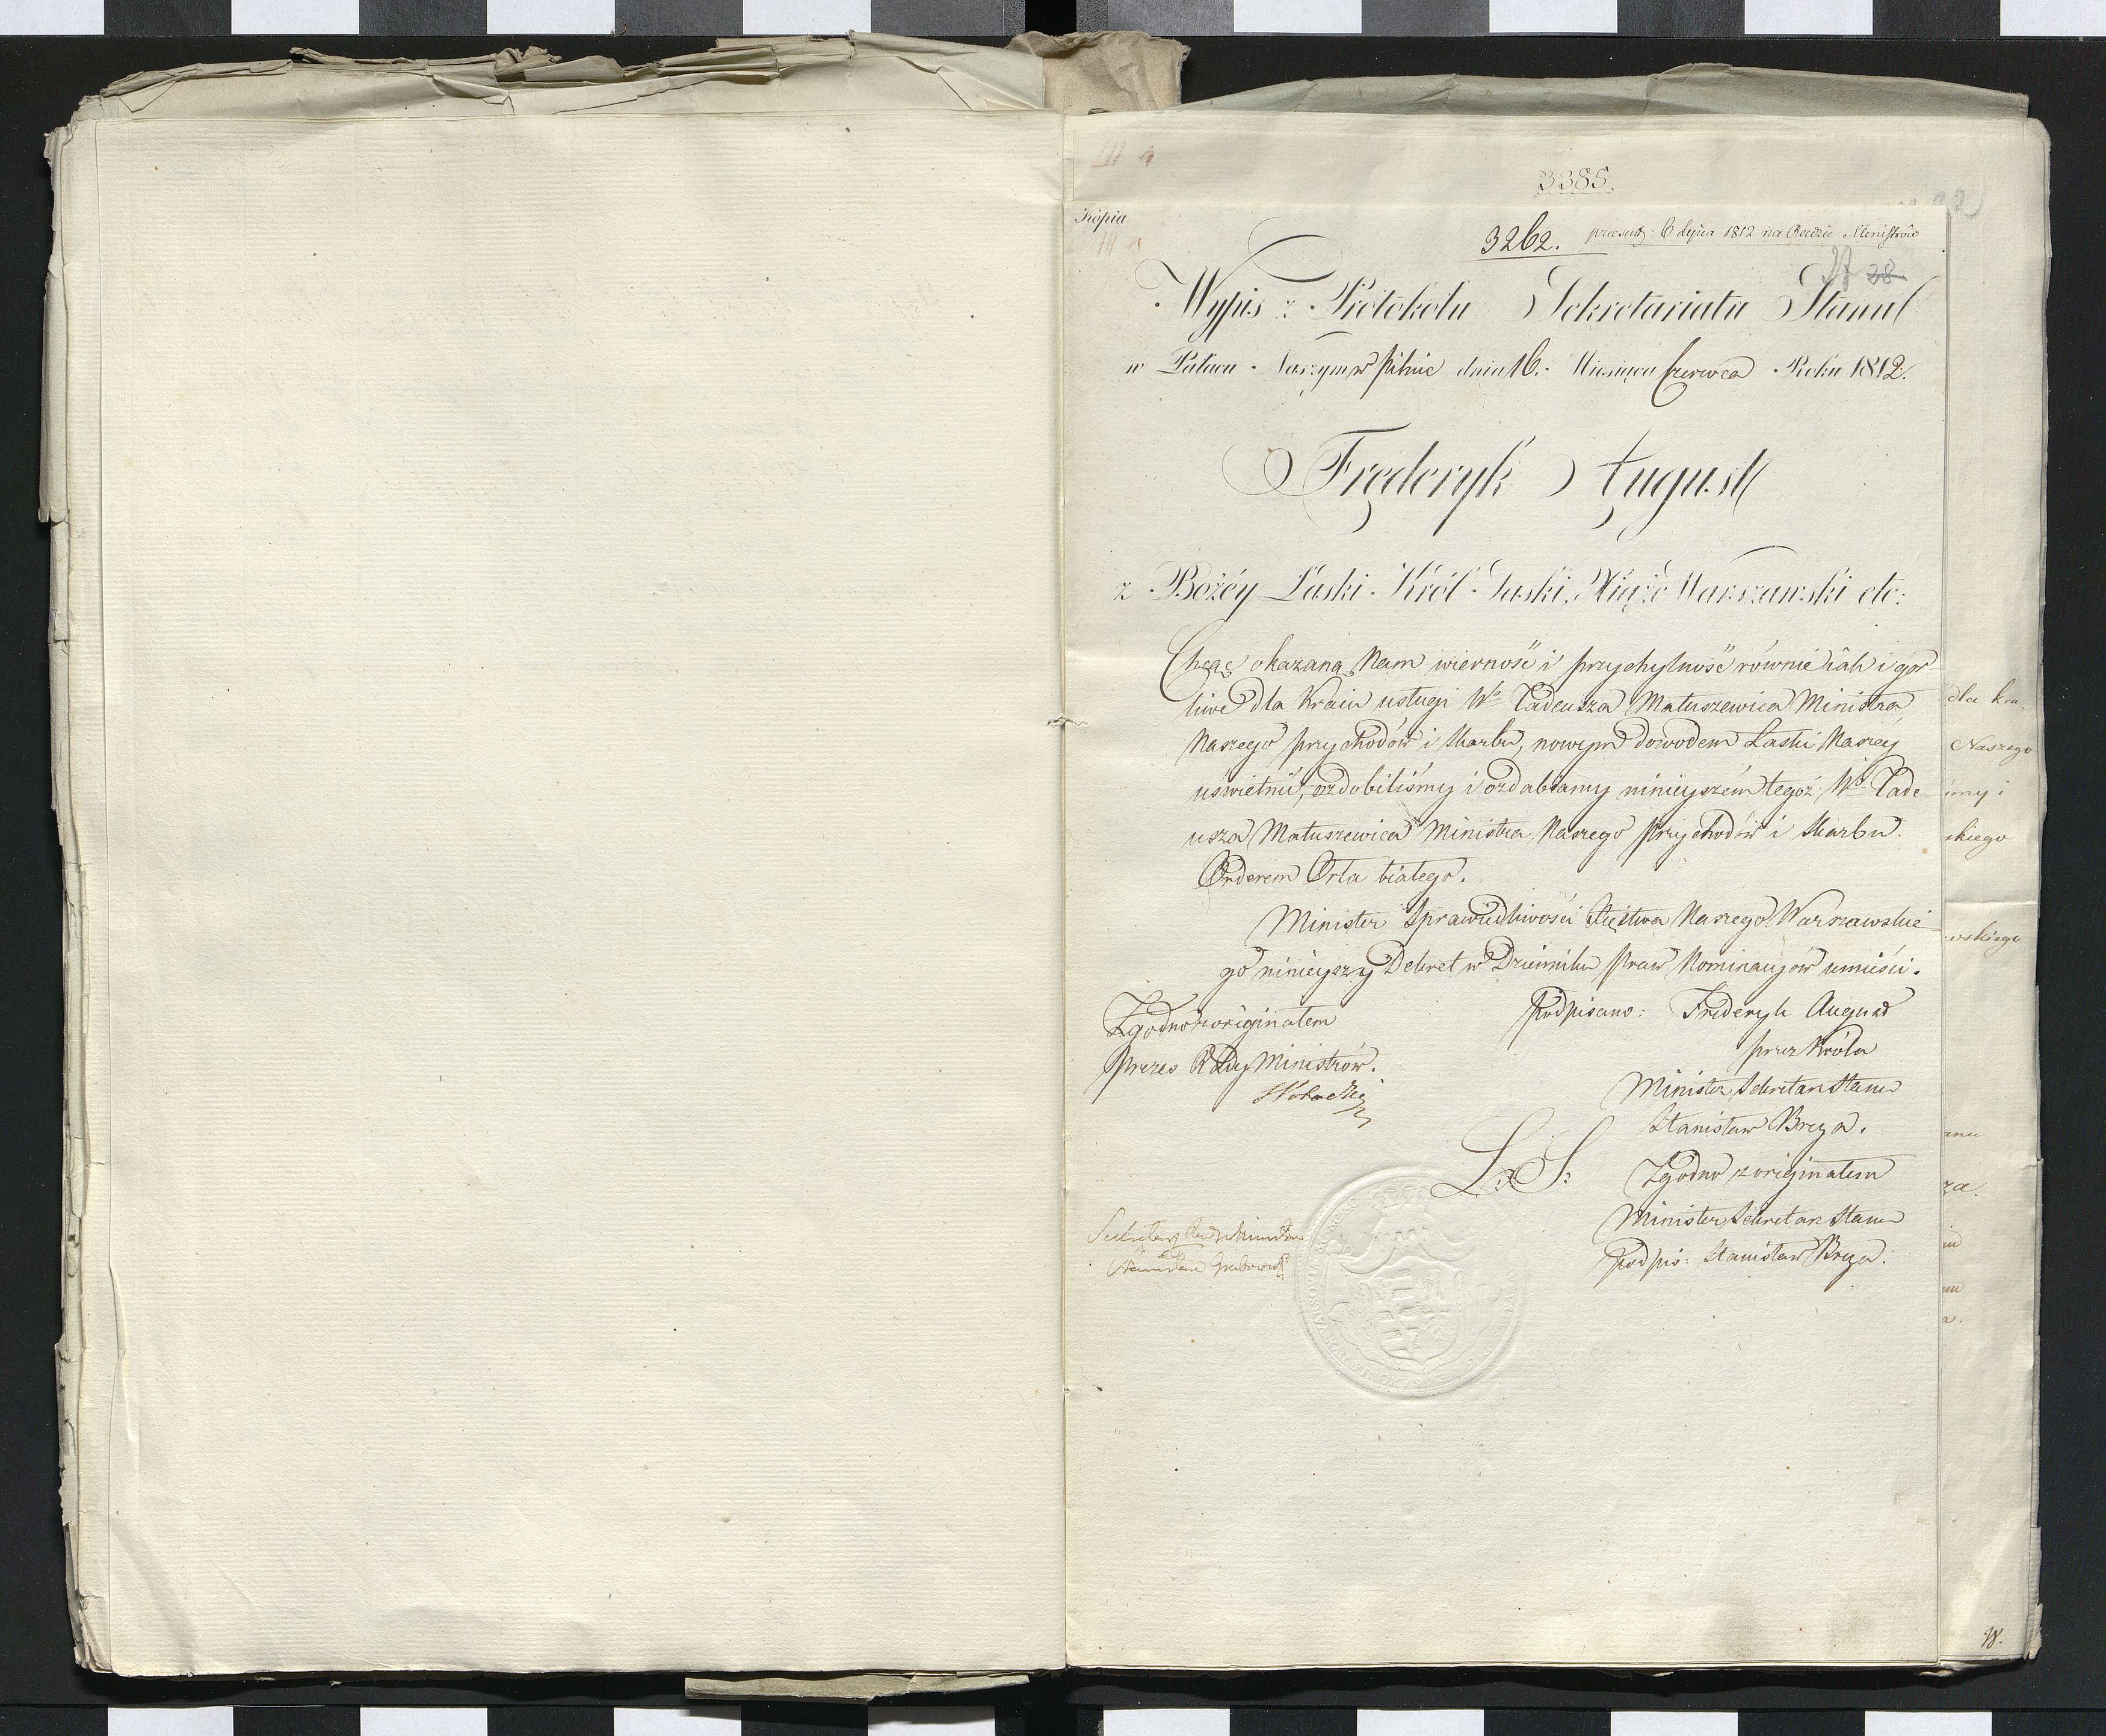 3385.
Kopia
3262. przeczyt: 6 lipca 1812 na Radzie Ministrów
27 28
Wypis z Protokołu Sekretariatu Stanu
w Pałacu Naszym w Pilnic dnia 16. Miesiąca Czerwca Roku 1812.
Fręderyk August
z Bożéy Łaski Król Saski, Xiąże Warszawski etc:
Chcąc okazaną Nam wierność i przychylność równie iak i gor
liwe dla Kraiu usługi Wo Tadeusza Matuszewica Ministra
Naszego przychodów i Skarbu, nowym dowodem Łaski Naszey
uświetnić, ozdobiliśmy i ozdabiamy ninieyszém tegoż Wo Tade
usza Matuszewica Ministra Naszego przychodów i Skarbu
Orderem Orła białego.
Minister Sprawiedliwości Xięstwa Naszego Warszawskie
go ninieyszy Dekret w Dzienniku Praw Nominacyów umieści.
Zgodno z originałem
Prezes Rady Ministrów.
Podpisano: Frideryk August
przez Króla
Minister Sekretarz Stanu
Stanisław Breza.
L. S:
Zgodno z originałem
Minister Sekretarz Stanu
Podpis: Stanisław Breza.
Sekretarz Rady Ministrów
Stanisław Grabowski
dla kra
Naszego
śmy i
skiego
wskiego